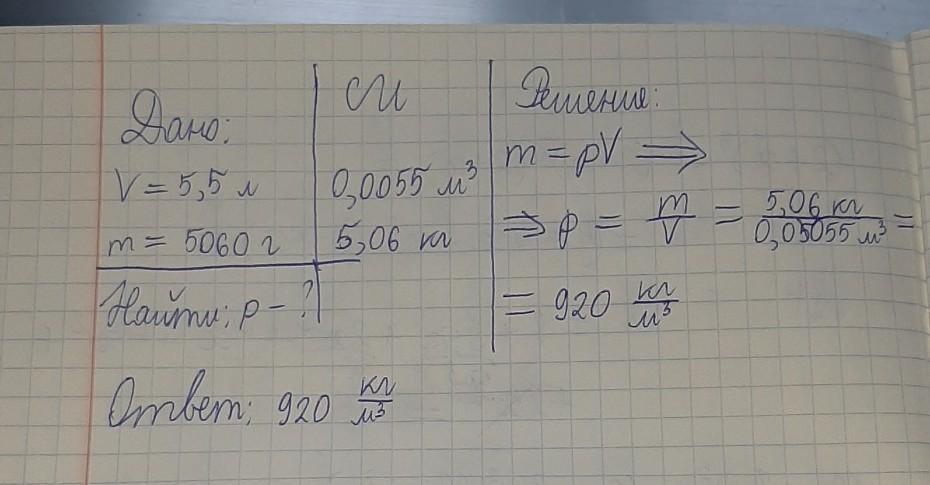 Дано:
V = 5,5 л
m = 5060 г
Найти: ρ - ?
СИ
0,0055 м³
5,06 кг
Решение:
m = ρV ⟹
⟹ ρ = m/V = 5,06 кг/0,05055 м³ =
= 920 кг/м³
Ответ: 920 кг/м³